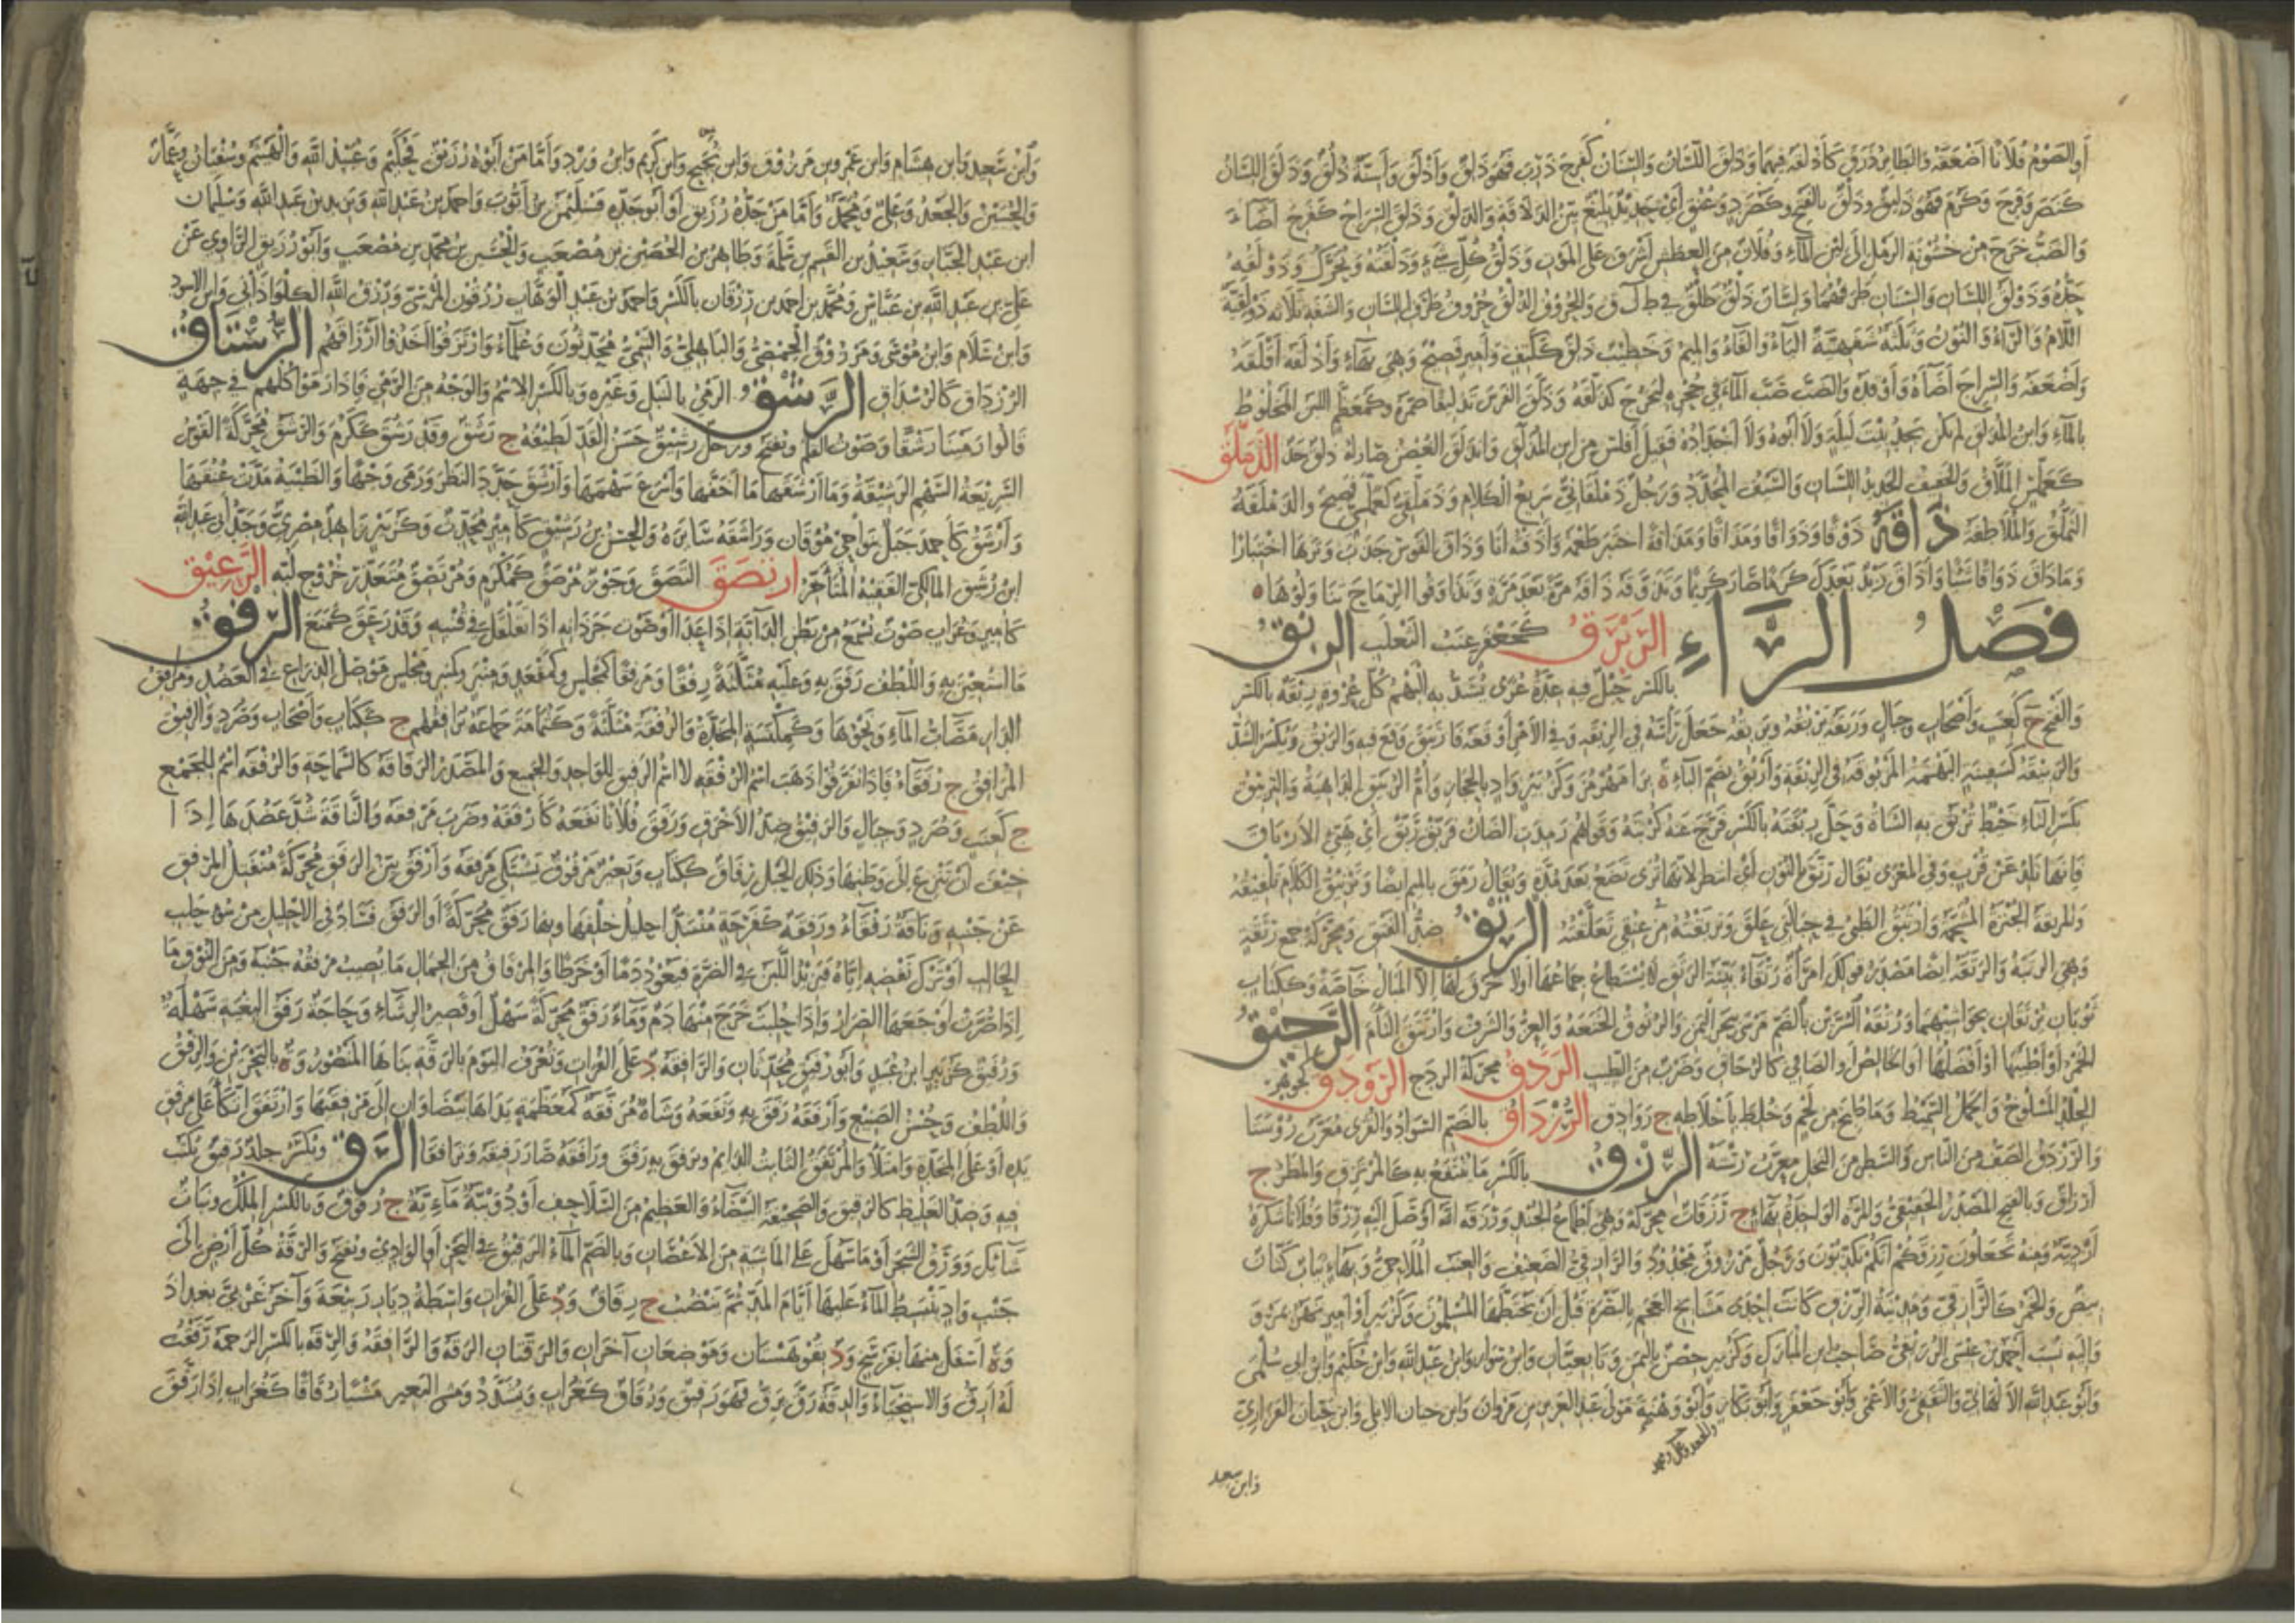 أو الصوم فلانا أضعفه والطائر ذرق كأذلقه فيهما وذلق اللسان والسنان كفرح ذرب فهو ذلق وأذلق وأسنة ذلق وذلق اللسان
كنصر وفرح وكرم فهو ذليق وذلق بالفتح وكصرد وعنق أي حديد بليغ بين الذلاقة والذلق وذلق السراج كفرح أضاء
والضب خرج من خشونة الرمل إلى لين الماء وفلان من العطش أشرف على الموت وذلق كل شيء وذلقته ويحرك وذولقه
حده وذولق اللسان والسنان طرفهما ولسان ذلق طلق في ط ل ق والحروف الذلق حروف طرف اللسان والشفة ثلاثة ذولقية
اللام والراء والنون وثلثة شفهية الباء والفاء والميم وخطيب ذلق ككتف وأمير فصيح وهي بهاء وأذلقه أقلقه
وأضعفه والسراج أضاءه وأوقده والضب صب الماء في جحره ليخرج كذلقه وذلق الفرس تذليقا ضمره وكمعظم اللبن المخلوط
بالماء وابن المذلق لم يكن يجد بيت ليلة ولا أبوه ولا أجداده فقيل أفلس من ابن المذلق وانذلق الغصن صار له ذلق حد الذملق
كعملس الملاق والخفيف الحديد اللسان والسيف المحدد ورجل ذملقاني سريع الكلام وذملقي كعملسي فصيح والذملقة
التملق والملاطفة ذاقه ذوقا وذواقا ومذاقا ومذاقة اختبر طعمه وأذقته أنا وذاق القوس جذب وترها اختبارا
وما ذاق ذواقا شيا وأذاق زيد بعدك كرما صار كريما وتذوقه ذاقه مرة بعد مرة وتذاوقوا الرماح تناولوها
فصل الراء الربرق كجعفر عنب الثعلب الربق
بالكسر حبل فيه عدة عرى تشد به البهم كل عروة ربقة بالكسر
والفتح ج كعنب وأصحاب وجبال وربقه يربقه ويربقه جعل رأسه في الربقة وفي الأمر أوقعه فارتبق وقع فيه والربق ويكسر الشد
والربيقة كسفينة البهيمة المربوقة في الربقة وأربق بضم الباء ة برامهرمز وكزبير واد بالحجاز وأم الربيق الداهية والتربيق
بكسر التاء خيط تربق به الشاة وحل ربقته بالكسر فرج عنه كربته وقولهم رمدت الضأن فربق ربق أي هيئ الأرباق
فإنها تلد عن قرب وفي المعزى يقال رنق بالنون أي انتظر لأنها ترى تضع بعد مدة ويقال رمق بالميم أيضا وتربيق الكلام تلفيقه
والمربقة الخبزة المشحمة وارتبق الظبي في حبالتي علق وتربقته من عنقي تعلقته الرتق ضد الفتق ومحركة جمع رتقة
وهي الرتبة والرتقة أيضا مصدر قولك امرأة رتقاء بينة الرتق لا يستطاع جماعها أو لا خرق لها إلا المبال خاصة وككتاب
ثوبان يرتقان بحواشيهما ورتقة السرين بالضم مرسى ببحر اليمن والرتوق الخنعة والعز والشرف وارتتق التأم الرحيق
الخمر أو أطيبها أو أفضلها أو الخالص أو الصافي كالرحاق وضرب من الطيب الردق محركة الردج الرودق كجوهر
الجلد المسلوخ والحمل السميط وما طبخ من لحم وخلط بأخلاطه ج روادق الرزداق بالضم السواد والقرى معرب رستا
والرزدق الصف من الناس والسطر من النخل معرب رسته الرزق بالكسر ما ينتفع به كالمرتزق والمطر ج
أرزاق وبالفتح المصدر الحقيقي والمرة الواحدة بهاء ج رزقات محركة وهي أطماع الجند ورزقه الله أوصل إليه رزقا وفلانا شكره
أزدية ومنه تجعلون رزقكم أنكم تكذبون ورجل مرزوق مجدود والرازقي الضعيف والعنب الملاحي وبهاء ثياب كتان
بيض والخمر كالرازقي ومدينة الرزق كانت إحدى مسالح العجم بالبصرة قبل أن يختطها المسلمون وكزبير أو أمير نهر بمرو
وإليه نسب أحمد بن عيسى الرزيقي صاحب ابن المبارك وكزبير حصن باليمن وتابعيان وابن سوار وابن عبد الله وابن حكيم وابن أبي سلمى
وأبو عبد الله الألهاني والثقفي والأعمى وأبو جعفر وأبو بكار وأبو وهنة مولى عبد العزيز بن مروان وابن حيان الأيلي وابن حيان الفزاري
وابن سعد
وابن سعيد وابن هشام وابن عمر وبن مرزوق وابن نجيح وابن كريم وابن ورد وأما من أبوه رزيق فحكيم وعبيد الله والهيثم وسفيان وعمار
والحسين والجعد وعلي ومحمد وأما من جده رزيق أو أبو جده فسليمن بن أيوب وأحمد بن عبد الله ويزيد بن عبد الله وسلمان
ابن عبد الجبار وسعيد بن القسم بن سلمة وطاهر بن الحصين بن مصعب والحسين بن محمد بن مصعب وأبو رزيق الراوي عن
علي بن عبد الله بن عباس ومحمد بن أحمد بن رزقان بالكسر وأحمد بن عبد الوهاب رزقون المرسي ورزق الله الكلواذاني وابن الأسود
وابن سلام وابن موسى ومرزوق الحمصي والباهلي والتيمي محدثون وعلماء وارتزقوا أخذوا أرزاقهم الرستاق
الرزداق كالرسداق الرشق الرمي بالنبل وغيره وبالكسر الاسم والوجه من الرمي فإذا رموا كلهم في جهة
قالوا رمينا رشقا وصوت القلم ويفتح ورجل رشيق حسن القد لطيفه ج رشق وقد رشق ككرم والرشق محركة القوس
السريعة السهم الرشيقة وما أرشقها ما أخفها وأسرع سهمها وأرشق حدد النظر ورمى وجها والظبية مدت عنقها
وأرشق كأحمد جبل بنواحي موقان وراشقه سايره والحسن بن رشيق كأمير محدث وكزبير زاهد مصري وجد أبي عبد الله
ابن رشيق المالكي الفقيه المتأخر ارتصق التصق وجوز مرصق كمكرم ومرتصق متعذر خروج لبه الرعيق
كأمير وغراب صوت يسمع من بطن الدابة إذا عدا أو صوت جردانه إذا تقلقل في قنبه وقد رعق كمنع الرفق
ما استعين به واللطف رفق به وعليه مثلثة رفقا ومرفقا كمجلس ومقعد ومنبر وكمنبر ومجلس موصل الذراع في العضد ومرافق
الدار مصاب الماء ونحوها وكمكنسة المخدة والرفقة مثلثة وكثمامة جماعة ترافقهم ج ككتاب وأصحاب وصرد والرفيق
المرافق ج رفقاء فإذا تفرقوا ذهب اسم الرفقة لا اسم الرفيق للواحد والجميع والمصدر الرفاقة كالسماحة والرفقة اسم للجمع
ج كعنب وصرد وجبال والرفيق ضد الأخرق ورفق فلانا نفعه كأرفقه وضرب مرفقه والناقة شد عضدها إذا
خيف أن تنزع إلى وطنها وذلك الحبل رفاق ككتاب وبعير مرفوق يشتكي مرفقه وأرفق بين الرفق محركة منفتل المرفق
عن جنبه وناقة رفقاء ورفقة كفرحة منسد إحليل خلفها وبها رفق محركة أو الرفق فساد في الإحليل من سوء حلب
الحالب أو ترك نفضه إياه فيرتد اللبن في الضرة فيعود دما أو خرطا والمرفاق من الجمال ما يصيب مرفقه جنبه ومن النوق ما
إذا صرت أوجعها الصرار وإذا حلبت خرج منها دم وماء رفق محركة سهل أو قصير الرشاء وحاجة رفق البغية سهلة
ورفيق كزبير ابن عبيد وأبو رفيق محدثان والرافقة د على الفرات وتعرف اليوم بالرقة بناها المنصور وة بالبحرين والرفق
واللطف وحسن الصنيع وأرفقه رفق به ونفعه وشاة مرفقة كمعظمة يداها بيضاوان إلى مرفقيها وارتفق اتكأ على مرفق
يده أو على المخدة وامتلأ والمرتفق الثابت الدائم وترفق به رفق ورافقه صار رفيقه وترافقا الرق ويكسر جلد رقيق يكتب
فيه وضد الغليظ كالرقيق والصحيفة البيضاء والعظيم من السلاحف أو دويبة مائية ج رقوق وبالكسر الملك ونبات
شائك وورق الشجر أو ما سهل على الماشية من الأغصان وبالضم الماء الرقيق في البحر أو الوادي ويفتح والرقة كل أرض إلى
جنب واد ينبسط الماء عليها أيام المد ثم ينضب ج رقاق ود على الفرات واسطة ديار ربيعة وآخر غربي بغداد
وة أسفل منها بفرسخ ود بقوهستان وموضعان آخران والرقتان الرقة والرافقة والرقة بالكسر الرحمة رققت
له أرق والاستحياء والدقة رق يرق فهو رقيق ورقاق كغراب ويشدد ومشى البعير مشيا رقاقا كغراب إذا رقق